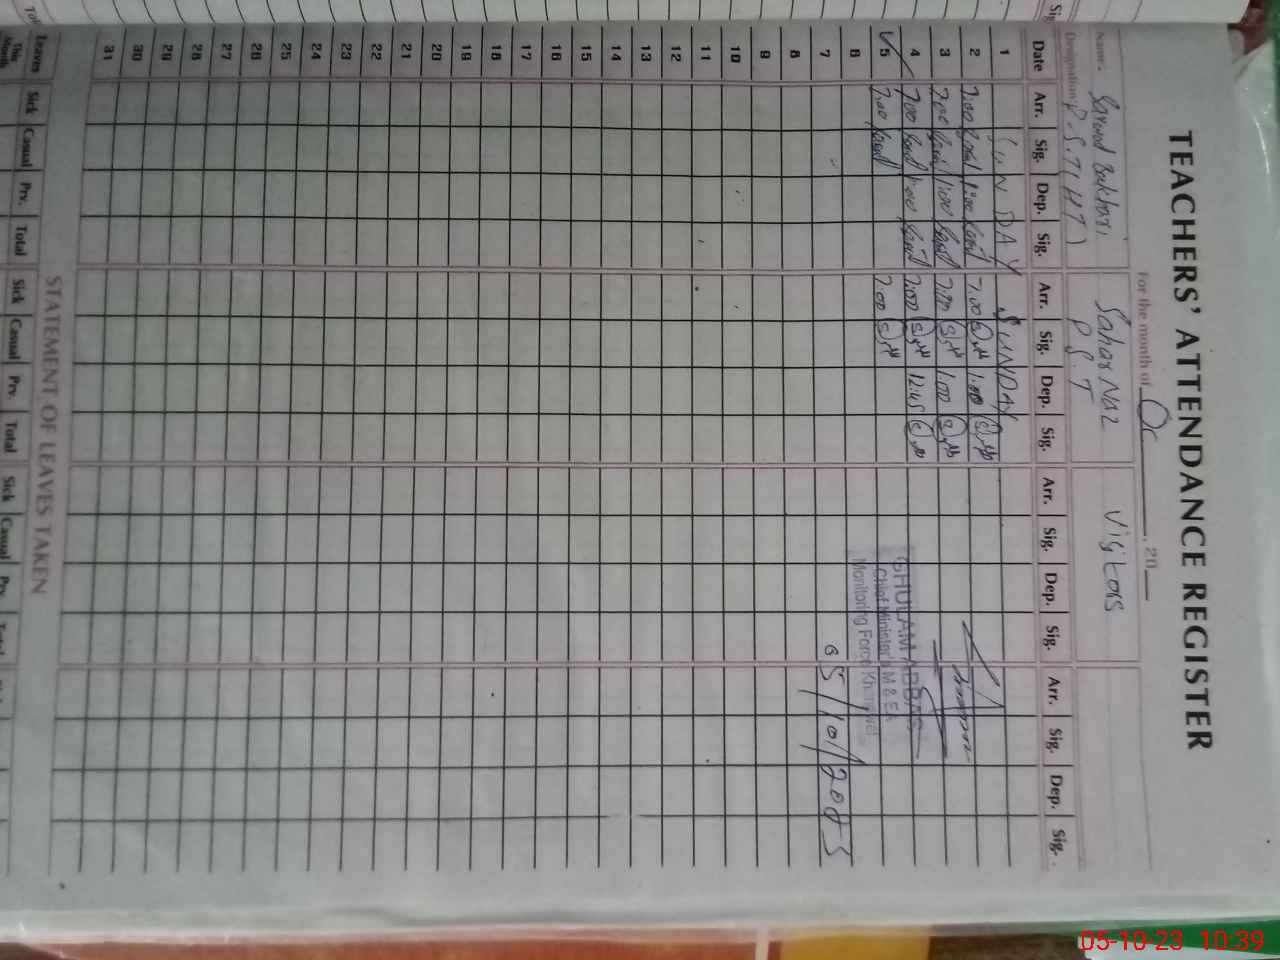 TEACHERS' ATTENDANCE REGISTER
For the month of Oc , 20
Name. Sarwad Bukhari Sahar Naz Visitors
Designation P.S.T(HT) P.S.T
Date Arr. Sig. Dep. Sig. Arr. Sig. Dep. Sig. Arr. Sig. Dep. Sig. Arr. Sig. Dep. Sig.
1 SUNDAY SUNDAY
2 7:00 1:00 7:00 1:00
3 7:00 1:00 7:00 1:00
4 7:00 1:00 7:00 12:45
5 7:00 7:00
6
7
8
9
10
11
12
13
14
15
16
17
18
19
20
21
22
23
24
25
26
27
28
29
30
31
GHULAM ABBAS
Chief Minister's M & EA
Monitoring Force Khanewal
05/10/2023
STATEMENT OF LEAVES TAKEN
Leaves Sick Casual Prv. Total Sick Casual Prv. Total Sick Casual Prv. Total
This Month
05-10-23 10:39